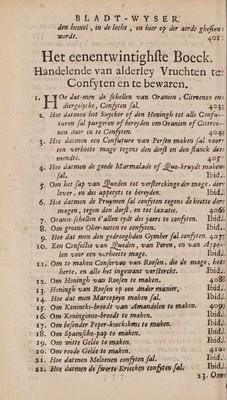 BLADT-WYSER.
den hemel, in de locht, en hier op der aerde gheslen:
wordt. 401:
Het eenentwintighste Boeck.
Handelende van alderley Vruchten te:
Confyten en te bewaren.
1. Hoe dat-men de schellen van Oranien, Citroenen en:
diergelijcke, Confyten sal. 403;
2. Hoe datmen het Suycker of den Honingh tot alle Confy:
turen sal purgeren of bereyden om Oranien of Citroe:
nen daer in te Confyten. 404;
3. Hoe datmen een Confiture van Persen maken sal voor
een verhette mage tegen den dorst en den stanck des
mondts. 405
4. Hoe datmen de goede Marmalade of Que-kruydt maken
sal. Ibid.
5. Om het sap van Queden tot versterckinge der mage, der:
lever, en des appetyts te bereyden. Ibid.
6. Hoe datmen de Pruymen sal confyten tegens de heette der:
magen, tegen den dorst, en tot laxatie. 406
7. Oranie schellen t'allen tyde des jaers te confyten. Ibid.
8. Om groene Oker-noten te confyten. Ibid.
9. Hoe dat men den gedrooghden Gymber sal confyten. 407
10. Een Confectie van Queden, van Peren, en van Appe-
len voor een verheette mage. Ibid.
11. Om te maken Conservas van Roosen, die de mage, het
herte, en alle het ingewant versterckt. Ibid.
12. Om Honigh van Roosen te maken. 408
13. Honingh van Roosen op een ander manier. Ibid.
14. Hoe dat men Marcepeyn maken sal. Ibid.
15. Om Koninckx-broodt van Amandelen te maken. 409
16. Om Koninginne-broodt te maken. Ibid.
17. Om besonder Peper-koeckskens te maken. Ibid.
18. Om Spaensche-pap te maken. Ibid.
19. Om witte Gelée te maken. Ibid.
20. Om roode Gelée te maken. 410
21. Hoe datmen Meloenen confyten sal. Ibid.
22. Hoe datmen de swerte Kriecken confyten sal. Ibid.
23. Om